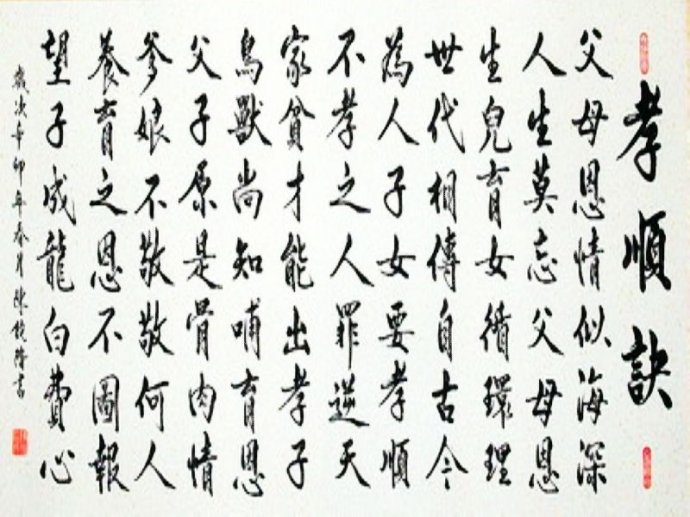 孝順訣
父母恩情似海深
人生莫忘父母恩
生兒育女循環理
世代相傳自古今
為人子女要孝順
不孝之人罪逆天
家貧才能出孝子
鳥獸尚知哺育恩
父子原是骨肉情
爹娘不敬敬何人
養育之恩不圖報
望子成龍白費心
歲次辛卯年春月陳鏡隆書